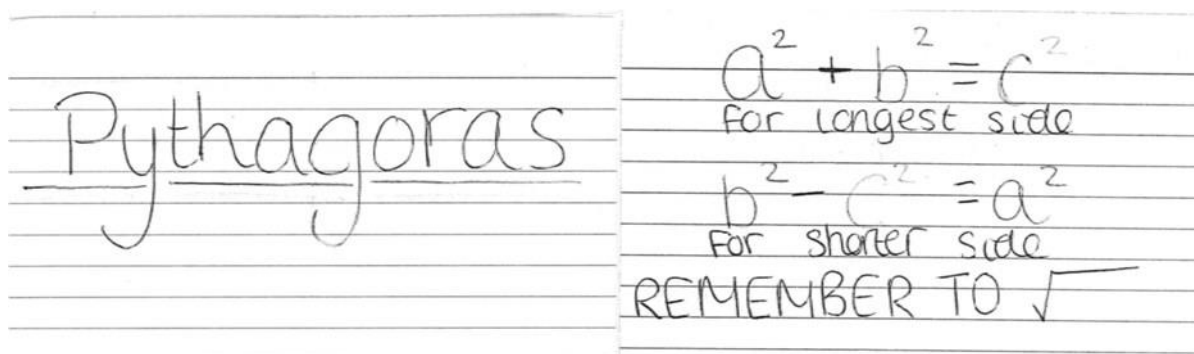 Pythagoras
a² + b² = c²
for longest side
b² - c² = a²
For shorter side
REMEMBER TO √